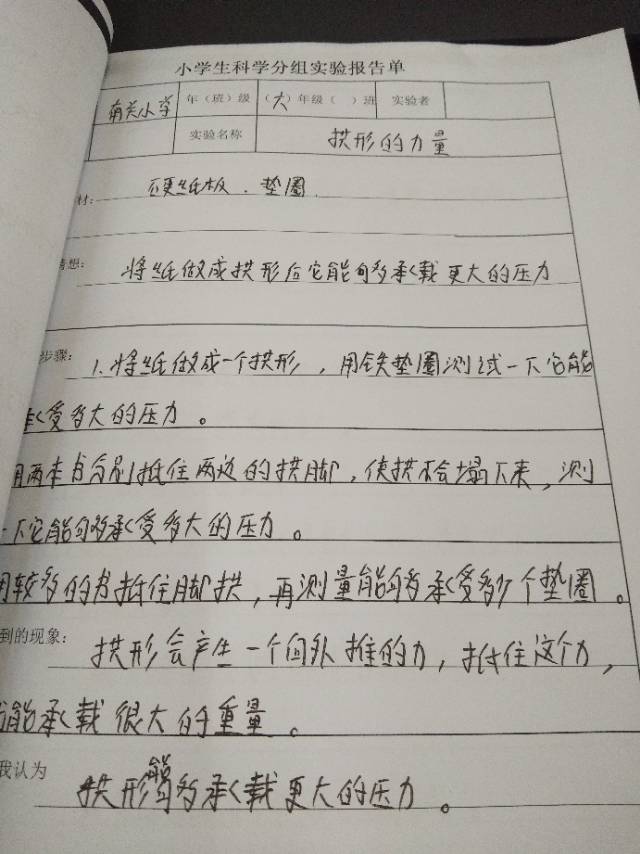 小学生科学分组实验报告单
南关小学 年（班）级 （六）年级（ ）班 实验者
实验名称 拱形的力量
材： 硬纸板．垫圈．
猜想： 将纸做成拱形后它能够承载更大的压力
步骤： 1.将纸做成一个拱形，用铁垫圈测试一下它能
承受多大的压力。
用两本书分别抵住两边的拱脚，使拱不会塌下来，测
一下它能够承受多大的压力。
用较多的书抵住脚拱，再测量能够承受多少个垫圈。
到的现象： 拱形会产生一个向外推的力，抵住这个力，
能承载很大的重量。
我认为 拱形能够承载更大的压力。